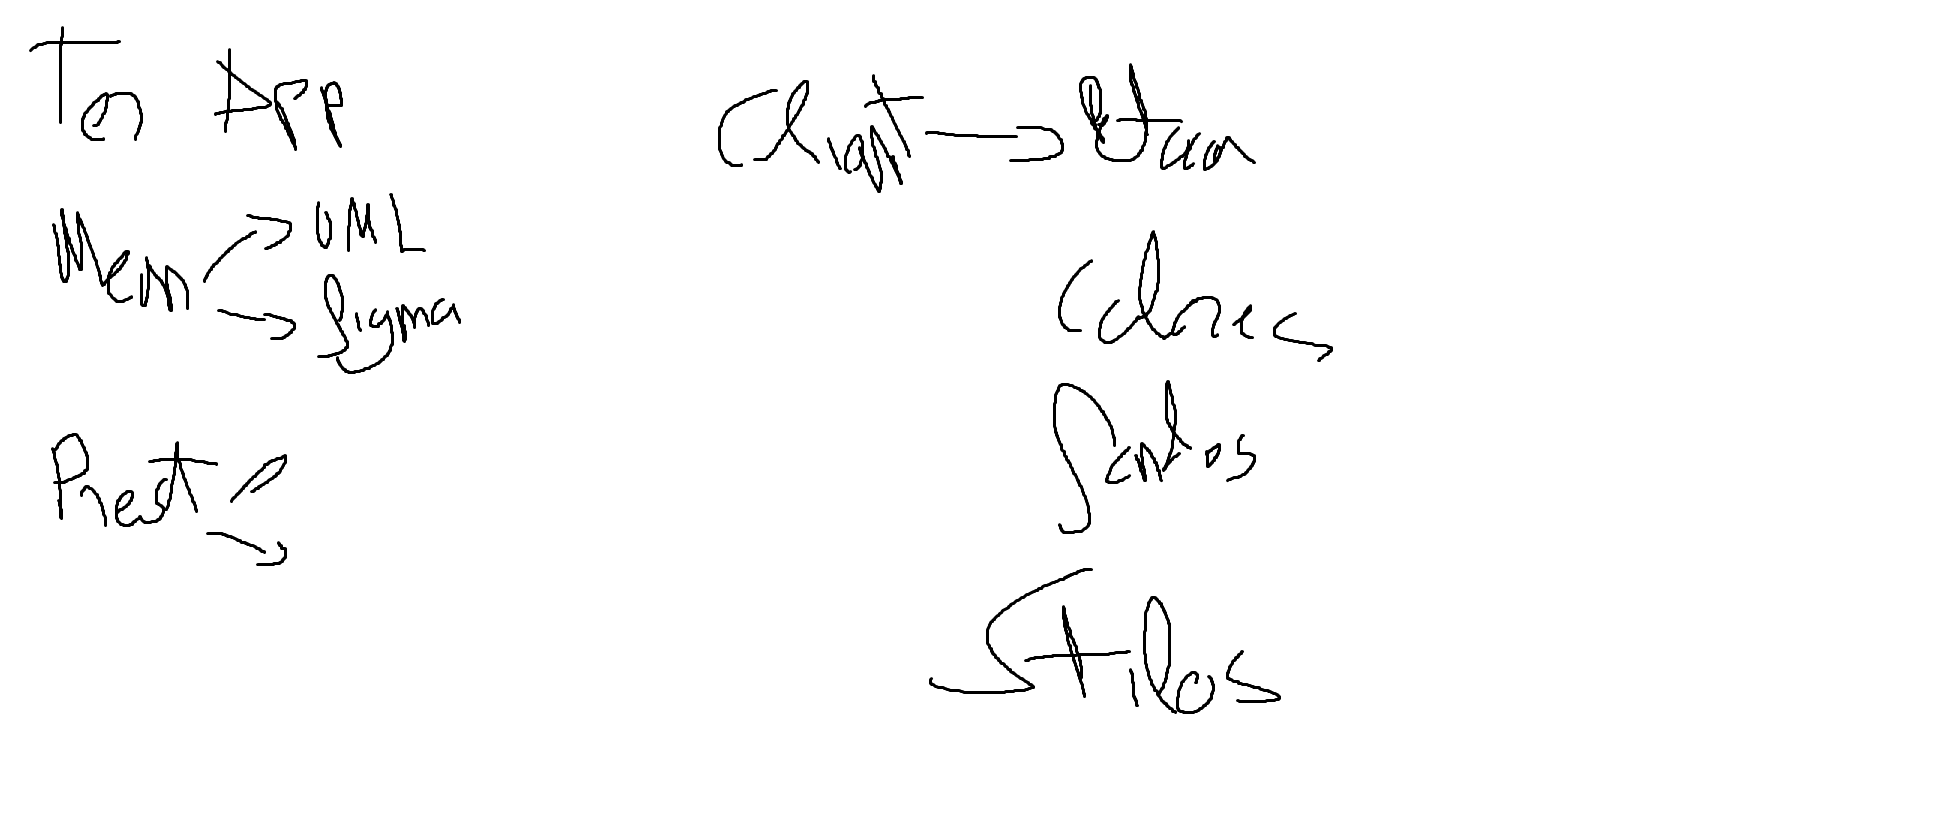 Ten App
Mem → UML
→ Sigma
Prest
Client →
Colores
Santos
Stilos